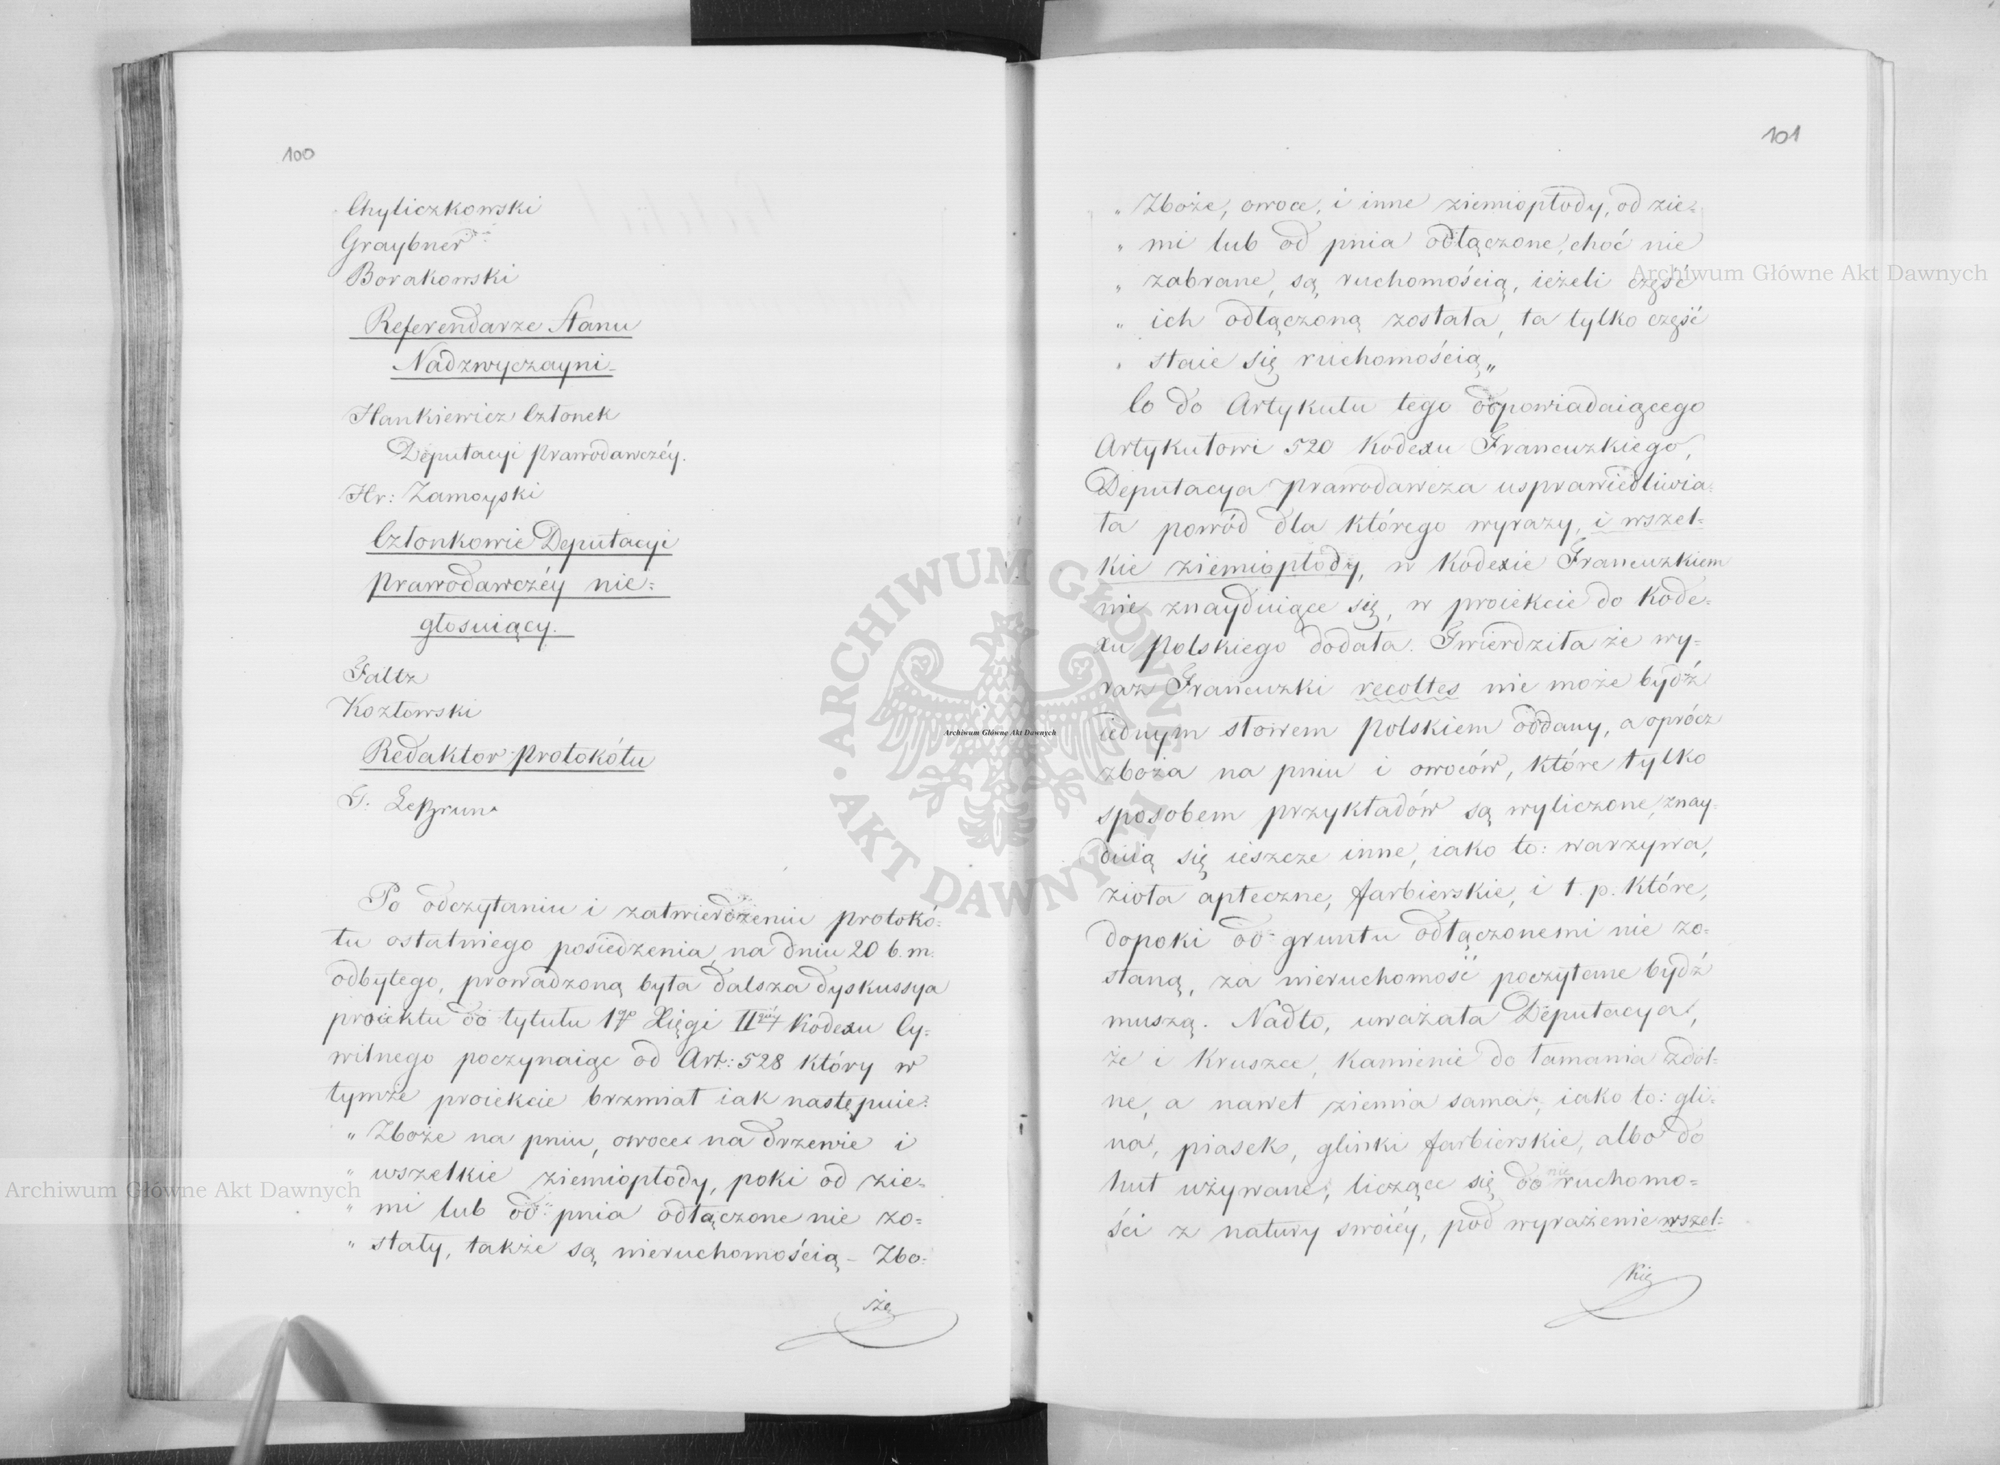 100
Chyliczkowski
Graybner
Borakowski
Referendarze Stanu
Nadzwyczayni
Hankiewicz Członek
Deputacyi Prawodawczéy.
Hr: Zamoyski
Członkowie Deputacyi
Prawodawczéy nie=
głosuiący.
Faltz
Kozłowski
Redaktor Protokółu
G. LeBrun
Po odczytaniu i zatwierdzeniu protokó=
łu ostatniego posiedzenia, na dniu 20 b. m.
odbytego, prowadzoną była dalsza dyskussya
proiektu do tytułu 1go Xięgi IIgiéy Kodexu Cy=
wilnego poczynaiąc od Art: 528 który w
tymże proiekcie brzmiał iak następuie:
„ Zboże na pniu, owoce na drzewie i
„ wszelkie ziemiopłody, poki od zie=
„ mi lub od pnia odłączone nie zo=
„ stały, także są nieruchomością – Zbo=
że
101
„ Zboże, owoce, i inne ziemiopłody, od zie=
„ mi lub od pnia odłączone, choć nie
„ zabrane, są ruchomością, ieżeli część
„ ich odłączoną została, ta tylko część
„ staie się ruchomością„
Co do Artykułu tego odpowiadaiącego
Artykułowi 520 Kodexu Francuzkiego,
Deputacya Prawodawcza usprawiedliwia=
ła powód dla którego wyrazy, i wszel=
kie ziemiopłody, w Kodexie Francuzkiem
nie znayduiące się, w proiekcie do Kode=
xu Polskiego dodała. Twierdziła że wy=
raz Francuzki recoltes nie może bydź
iednym słowem Polskiem oddany, a oprócz
zboża na pniu i owoców, które tylko
sposobem przykładów są wyliczone, znay=
duią się ieszcze inne, iako to: warzywa,
zioła apteczne, farbierskie, i t. p. które,
dopoki od gruntu odłączonemi nie zo=
staną, za nieruchomość poczytane bydź
muszą. Nadto, uważała Deputacya,
że i kruszce, kamienie do łamania zdol=
ne, a nawet ziemia sama, iako to: gli=
na, piasek, glinki farbierskie, albo do
hut używane, liczące się do nieruchomo=
ści z natury swoiéy, pod wyrażenie wszel=
kie
Archiwum Główne Akt Dawnych
Archiwum Główne Akt Dawnych
Archiwum Główne Akt Dawnych
ARCHIWUM GŁÓWNE • AKT DAWNYCH •